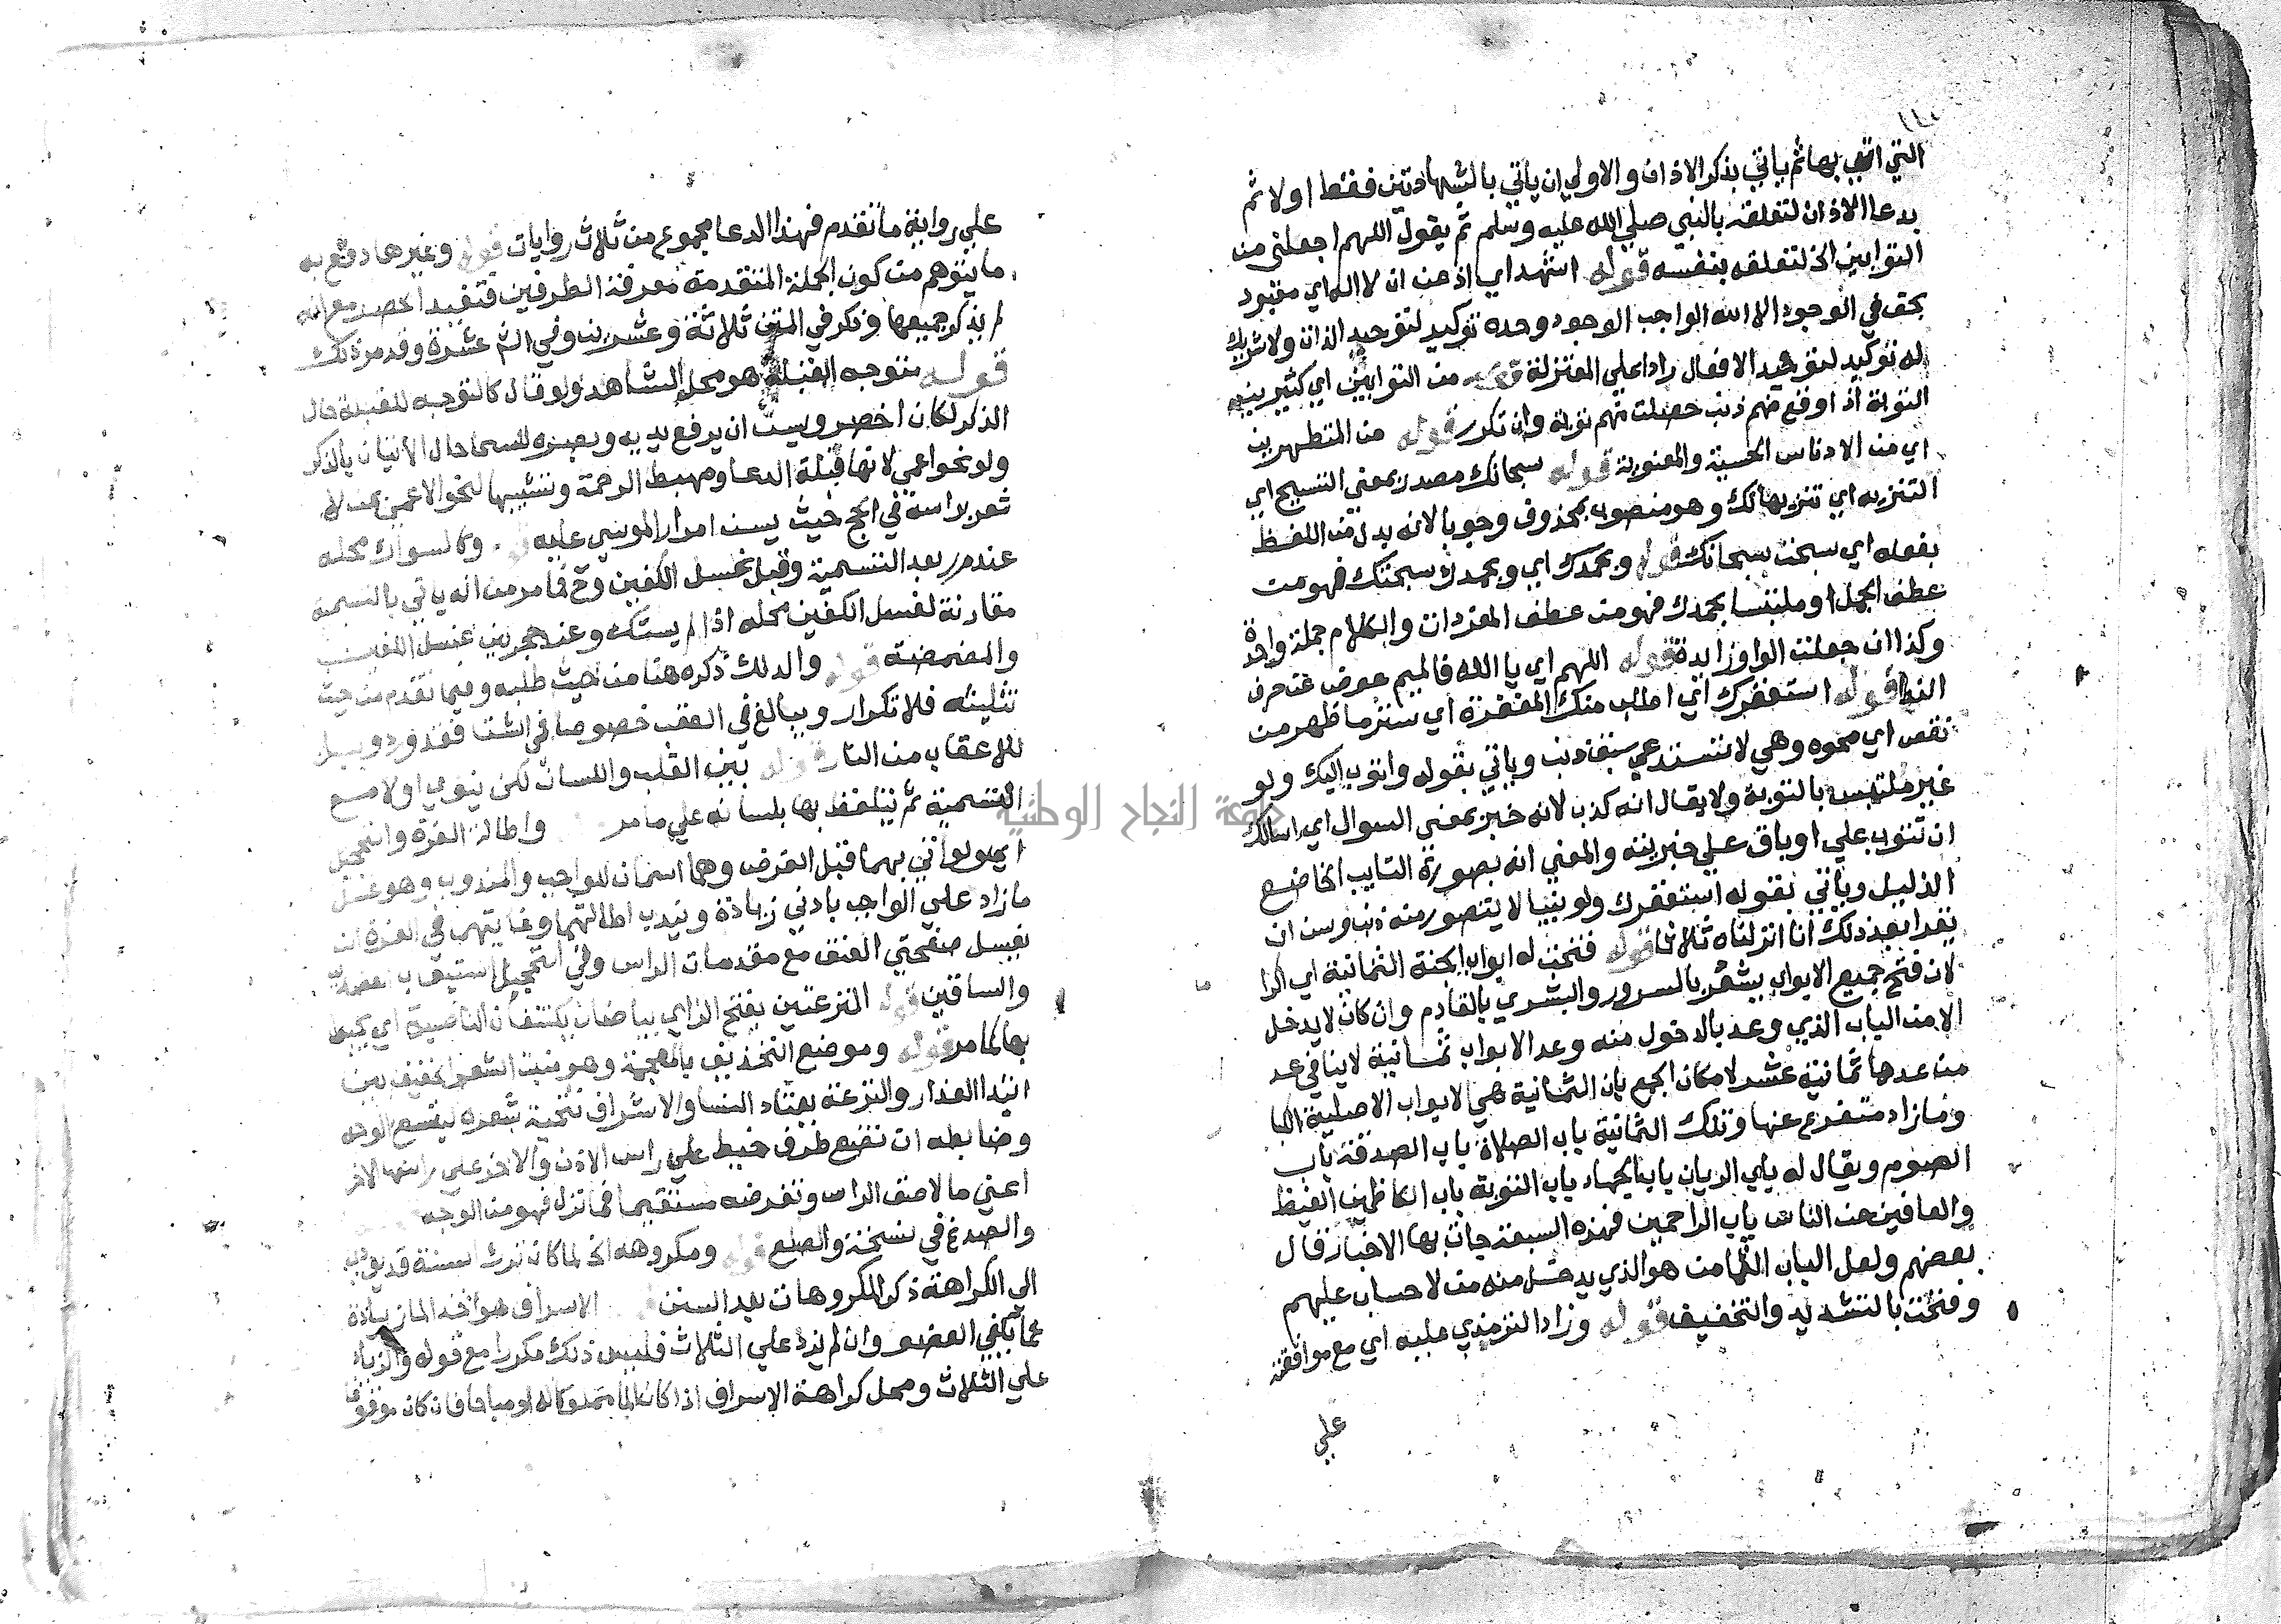 التي اتي بها ثم ياتي بذكر الاذان والاولي ان ياتي بالشهادتين فقط اولا ثم
بدعا الاذان لتعلقه بالنبي صلي الله عليه وسلم ثم يقول اللهم اجعلني من
التوابين الخ لتعلقه بنفسه قوله اشهد اي اذعن ان لا اله اي معبود
بحق في الوجود الا الله الواجب الوجود وحده توكيد لتوحيد الذات ولا شريك
له توكيد لتوحيد الافعال رادا علي المعتزلة قوله من التوابين اي كثيرين
التوبة اذ اوقع منهم ذنب حصلت منهم توبة وان تكرر قوله من المتطهرين
اي من الادناس الحسية والمعنوية قوله سبحانك مصدر بمعني التسبيح اي
التنزيه اي تنزيها لك وهو منصوب بمحذوف وجوبا لانه بدل من اللفظ
بفعله اي سبحت سبحانك قوله وبحمدك اي وبحمدك سبحتك فهو من
عطف الجمل او ملتبسا بحمدك فهو من عطف المفردات والكلام جملة واحدة
وكذا ان جعلت الواو زايدة قوله اللهم اي يا الله فالميم عوض عن حرف
الندا قوله استغفرك اي اطلب منك المغفرة اي ستر ما ظهر من
نقص اي محوه وهي لا تستدعي سبق ذنب وياتي بقوله واتوب اليك ولو
غير ملتبس بالتوبة ولا يقال انه كذب لانه خبر بمعني السوال اي اسالك
ان تتوب علي او باق علي خبريته والمعني انه بصورة التايب الخاضع
الذليل وياتي بقوله استغفرك ولو نبيا لا يتصور منه ذنب وسن ان
يقرا بعد ذلك انا انزلناه ثلاثا قوله فتحت له ابواب الجنة الثمانية اي
لان فتح جميع الابواب يشعر بالسرور والبشري بالقادم وان كان لا يدخل
الا من الباب الذي وعد بالدخول منه وعد الابواب ثمانية لا ينافي عد
من عدها ثمانية عشر لامكان الجمع بان الثمانية هي الابواب الاصلية
وما زاد متفرع عنها وتلك الثمانية باب الصلاة باب الصدقة باب
الصوم ويقال له باب الريان باب الجهاد باب التوبة باب الكاظمين الغيظ
والعافين عن الناس باب الراحمين فهذه السبعة جات بها الاخبار قال
بعضهم ولعل الباب الثامن هو الذي يدخل منه من لا حساب عليهم
وفتحت بالتشديد والتخفيف قوله وزاد الترمذي عليه اي مع موافقته
علي
علي رواية ما تقدم فهذا الدعا مجموع من ثلاث روايات قوله وغيرها دفع به
ما يتوهم من كون الجملة المتقدمة معرفة الطرفين فتفيد الحصر مع انه
لم يذكر جميعها وذكر في المتن ثلاثة وعشرين وفي الشر عشرة وقد مر ذلك
قوله بتوجه القبلة هو محل الشاهد ولو قال كالتوجه للقبلة حال
الذكر لكان اخصر ويسن ان يرفع يديه وبصره للسما حال الاتيان بالذكر
ولو نحو اعمي لانها قبلة الدعا ومهبط الرحمة وتشبيها لنحو الاعمي بمن لا
شعر براسه في الحج حيث يسن امرار الموسي عليه وكالسواك محله
عند م ر بعد التسمية وقبل غسل الكفين وح فما مر من انه ياتي بالتسمية
مقارنة لغسل الكفين محله اذا لم يستك وعند حجر بين غسل الكفين
والمضمضة قوله والدلك ذكره هنا من حيث طلبه وفيما تقدم من حيث
تثليثه فلا تكرار ويبالغ في العقب خصوصا في الشتا فقد ورد ويل
للاعقاب من النار قوله بين القلب واللسان لكن ينوي اولا مع
التسمية ثم يتلفظ بها بلسانه علي ما مر واطالة الغرة والتحجيل
اي ولو اتي بهما قبل الفرض وهما اسمان للواجب والمندوب وهو غسل
ما زاد علي الواجب بادني زيادة ويندب اطالتهما وغايتها في الغرة ان
يغسل صفحتي العنق مع مقدمات الراس وفي التحجيل استيعاب العضدين
والساقين قوله النزعتين بفتح الزاي بياضان يكتنفان الناصية اي يحيطا
بها كما مر قوله وموضع التحذيف بالمعجمة وهو منبت الشعر الخفيف بين
ابتدا العذار والنزعة يعتاد النسا والاشراف تنحية شعره ليتسع الوجه
وضابطه ان تضع طرف خيط علي راس الاذن والاخر علي
اعني ما لاصق الراس وتفرضه مستقيما فما نزل فهو من الوجه
والصدغ في نسخة والصلع قوله ومكروهه الخ لما كان ترك السنة قد يودي
الي الكراهة ذكر المكروهات بعد السنن الاسراف هو اخذ الما زيادة
عما يكفي العضو وان لم يزد علي الثلاث فليس ذلك مكررا مع قوله والزيادة
علي الثلاث ومحل كراهة الاسراف اذا كان الما مملوكا له او مباحا فان كان موقوفا
جامعة النجاح الوطنية